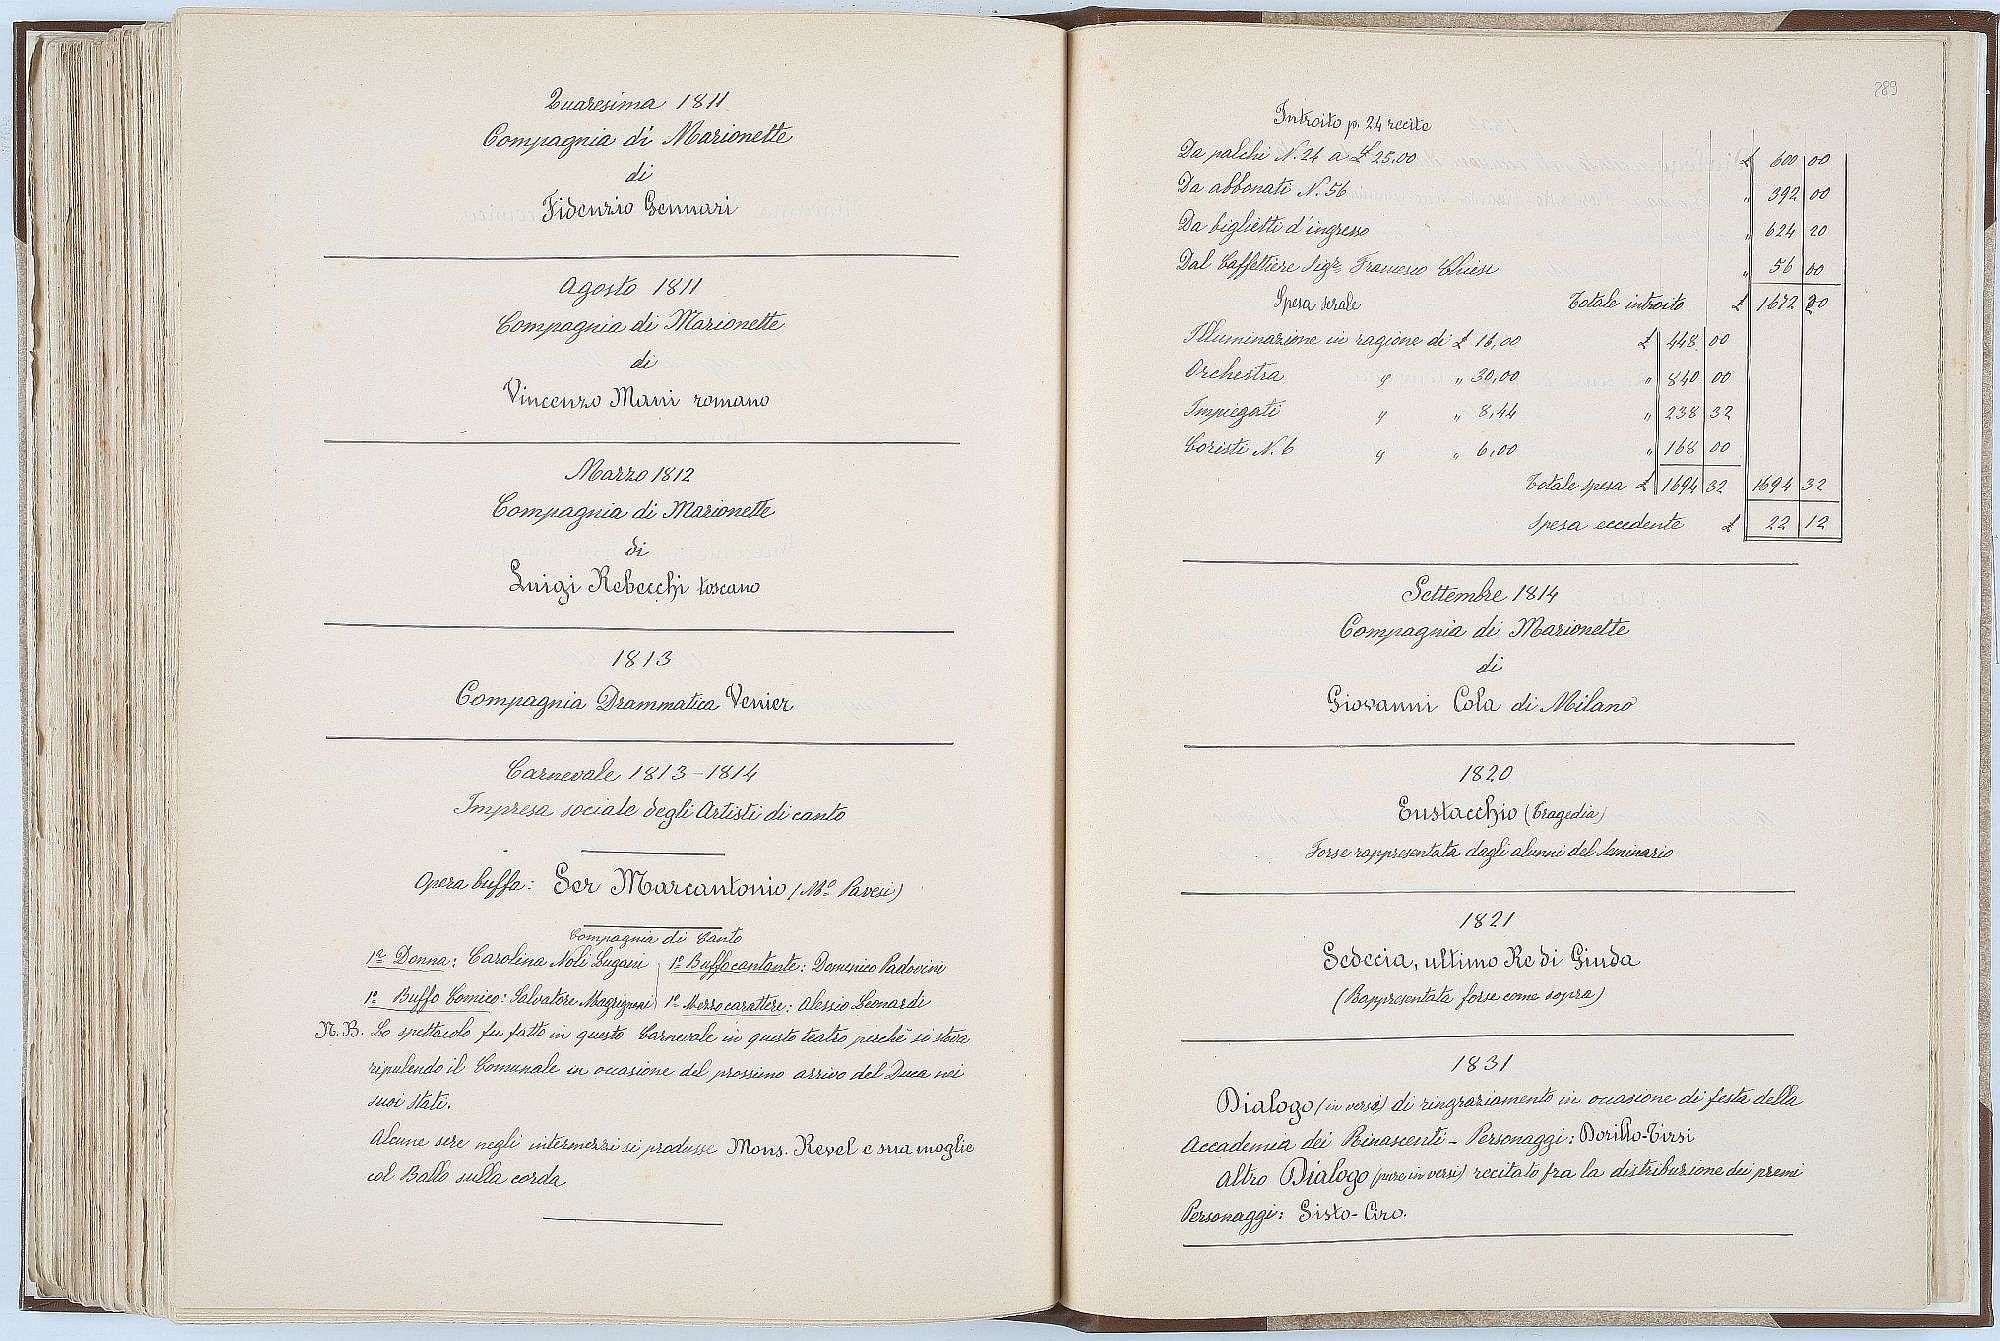 Quaresima 1811
Compagnia di Marionette
di
Fidenzio Gennari
Agosto 1811
Compagnia di Marionette
di
Vincenzo Mani romano
Marzo 1812
Compagnia di Marionette
di
Luigi Rebecchi toscano
1813
Compagnia Drammatica Venier
Carnevale 1813-1814
Impresa sociale degli Artisti di canto
Opera buffa: Ser Marcantonio (Mº Pavesi)
Compagnia di Canto
1ª Donna: Carolina Noli Lugani 1º Buffo cantante: Domenico Padovini
1º Buffo Comico: Salvatore 1º Mezzo carattere: Alessio Leonardi
N.B. Lo spettacolo fu fatto in questo Carnevale in questo teatro perchè si stava
ripulendo il Comunale in occasione del prossimo arrivo del Duca nei
suoi stati.
Alcune sere negli intermezzi si produsse Mons. Revel e sua moglie
col Ballo sulla corda
289
Introito p. 24 recite
Da palchi N. 24 a £ 25.00 £ 600 00
Da abbonati N. 56 " 392 00
Da biglietti d'ingresso " 624 20
Dal Caffettiere Sigr. Francesco Chiesi " 56 00
Spesa serale Totale introito £ 1672 20
Illuminazione in ragione di £ 16,00 £ 448 00
Orchestra " " 30,00 " 840 00
Impiegati " " 8,44 " 238 32
Coristi N. 6 " " 6,00 " 168 00
Totale spesa £ 1694 32 1694 32
Spesa eccedente £ 22 12
Settembre 1814
Compagnia di Marionette
di
Giovanni Cola di Milano
1820
Eustacchio (Tragedia)
Forse rappresentata dagli alunni del Seminario
1821
Sedecia, ultimo Re di Giuda
(Rappresentata forse come sopra)
1831
Dialogo (in versi) di ringraziamento in occasione di festa della
Accademia dei Rinascenti - Personaggi: Dorillo-Tirsi
Altro Dialogo (pure in versi) recitato fra la distribuzione dei premi
Personaggi: Sisto-Ciro.